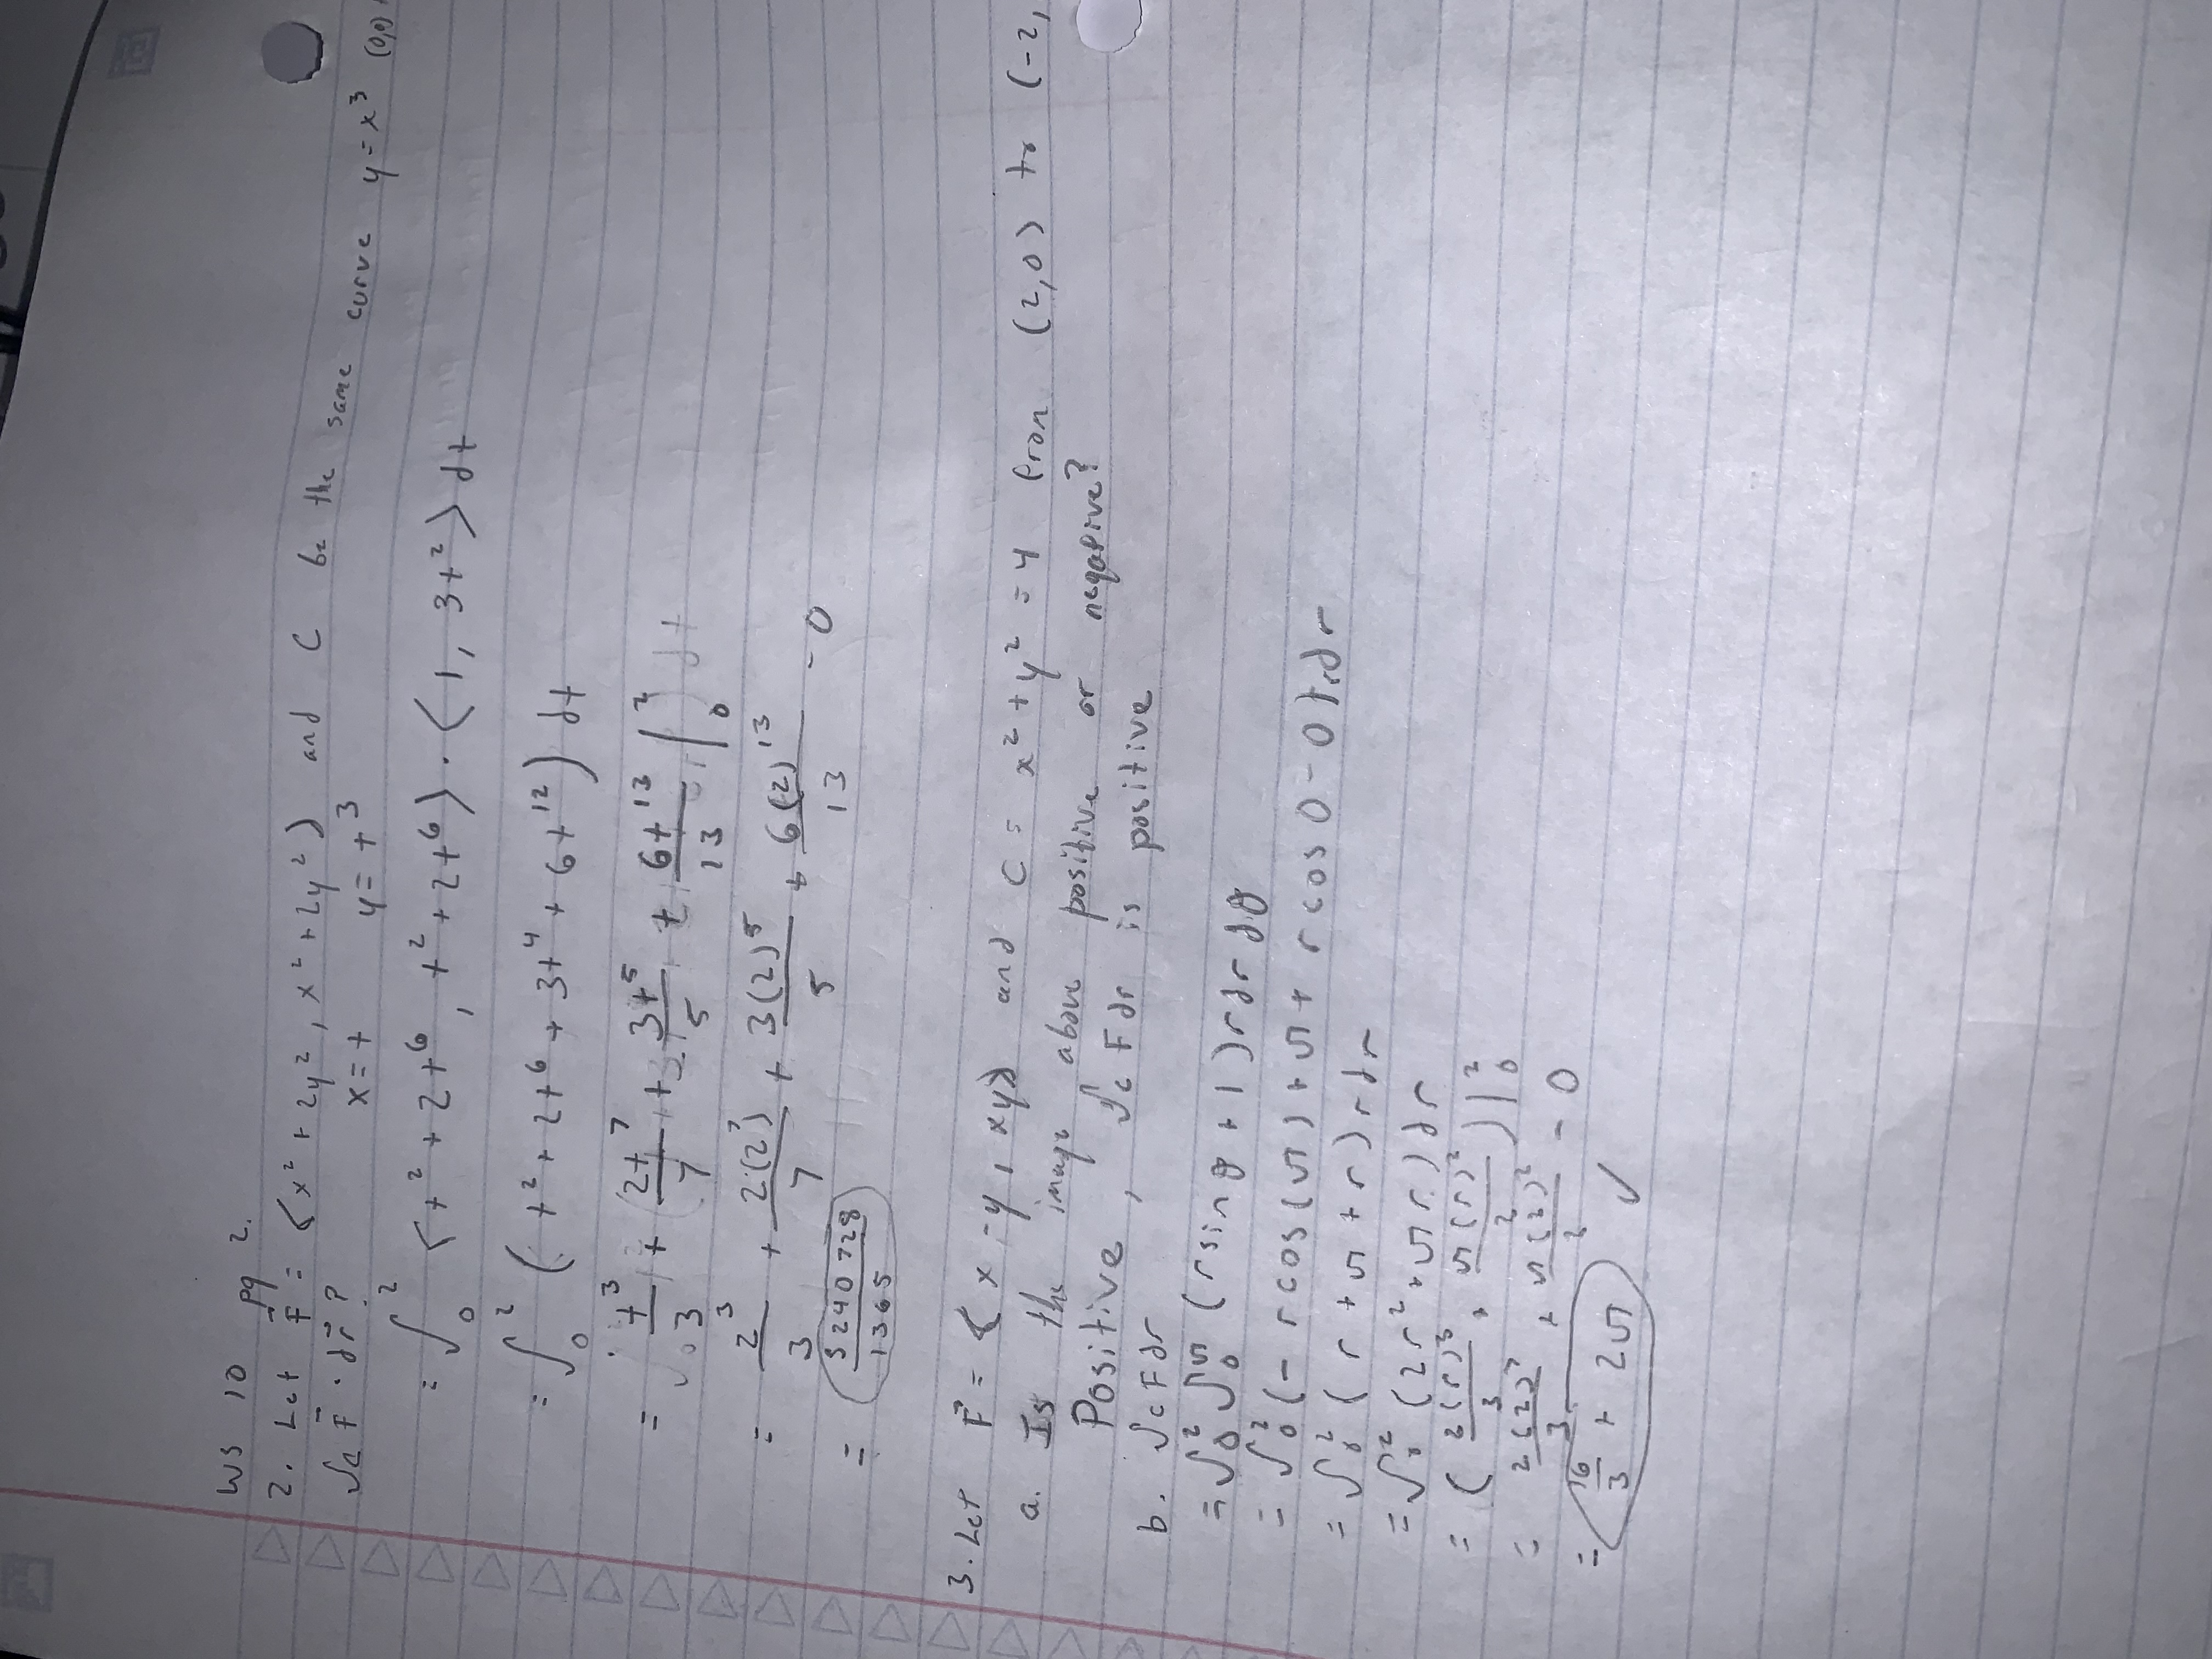 WS 10 pg 2.
2. Let F⃗ = <x² + 2y², x² + 2y²> and C be the same curve y = x³ (0,0)
∫c F⃗ · dr⃗ ? x = t y = t³
= ∫₀² <t² + 2t⁶, t² + 2t⁶> · <1, 3t²> dt
= ∫₀² (t² + 2t⁶ + 3t⁴ + 6t¹²) dt
= t³/3 + 2t⁷/7 + 3t⁵/5 + 6t¹³/13 |₀²
= 2³/3 + 2·(2⁷)/7 + 3(2)⁵/5 + 6(2)¹³/13 - 0
= 5240728/1365
3. Let F⃗ = <x - y, xy> and C = x² + y² = 4 from (2,0) to (-2,
a. Is the image above positive or negative?
Positive, ∫c F dr is positive
b. ∫c F dr
= ∫₀² ∫₀^π (r sin θ + 1) r dr dθ
= ∫₀² (- r cos(π) + π + r cos 0 - 0) r dr
= ∫₀² (r + π + r) r dr
= ∫₀² (2r² + πr) dr
= (2(r)³/3 + π(r)²/2)|₀²
= 2(2)³/3 + π(2)²/2 - 0
= 16/3 + 2π ✓